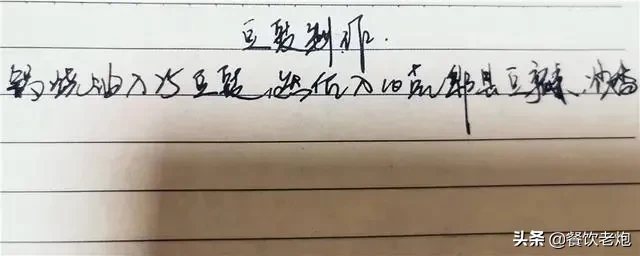 豆豉制作.
锅烧油入25豆豉,然后入10克郫县豆瓣,炒香
头条 @餐饮老炮